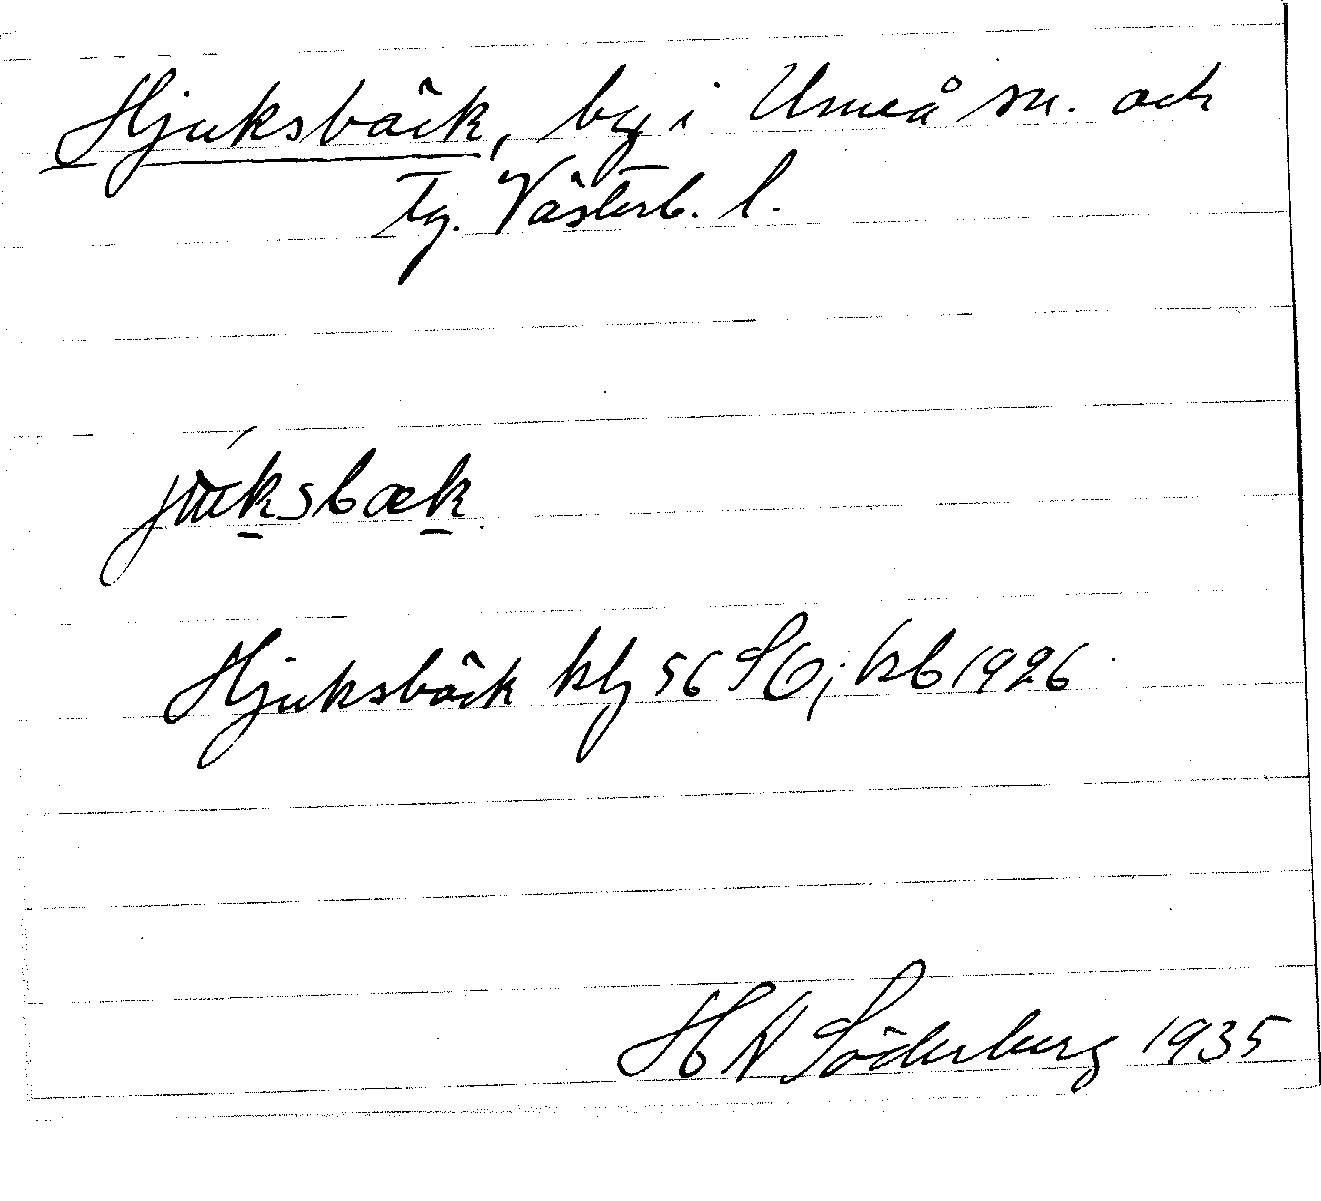 Hjuksbäck, by i Umeå sn. och
tg. Västerb. l.
Hjuksbäck klj 56 SO; kb 1926
H N Söderberg 1935